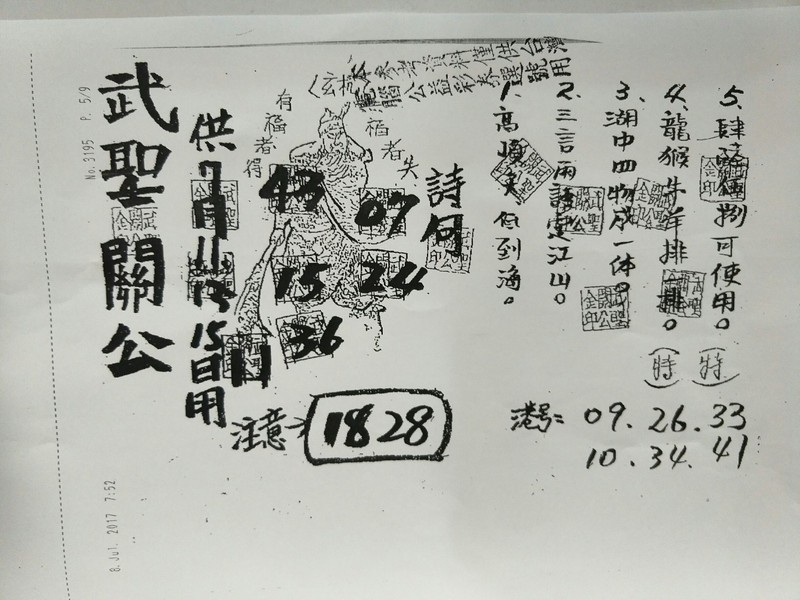 5. 肆陸捌可使用。
(特)
4. 龍猴牛羊排排。
(特)
3. 湖中四物成一体。
2. 三言兩語定江山。
1. 高
但到海。
本參考資料僅供台灣
電腦公益彩券選號用
詩句
福者失
有福者得
43
07
15
24
36
11
供7月11.13.15日用
武聖關公
注意
18 28
港号:
09. 26. 33
10. 34. 41
No. 3195 P. 5/9
8. Jul. 2017 7:52